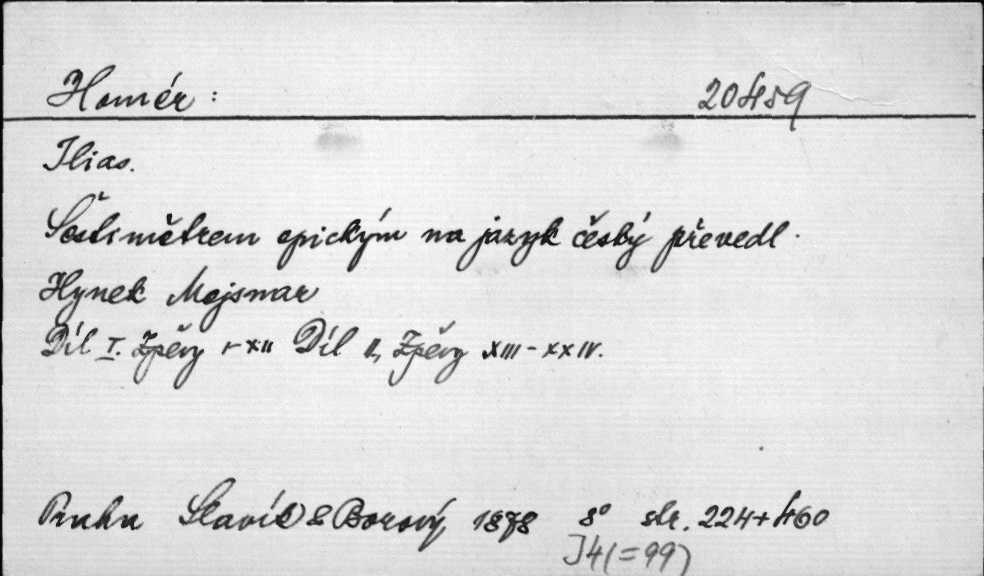 Homér: 20459
Ilias.
Šestimětrem epickým na jazyk český převedl
Hynek Mejsnar
Díl I. Zpěvy I-XII Díl II, Zpěvy XIII-XXIV.
Praha Slavík & Borový 1878 8° str. 224+460
J4(=99)